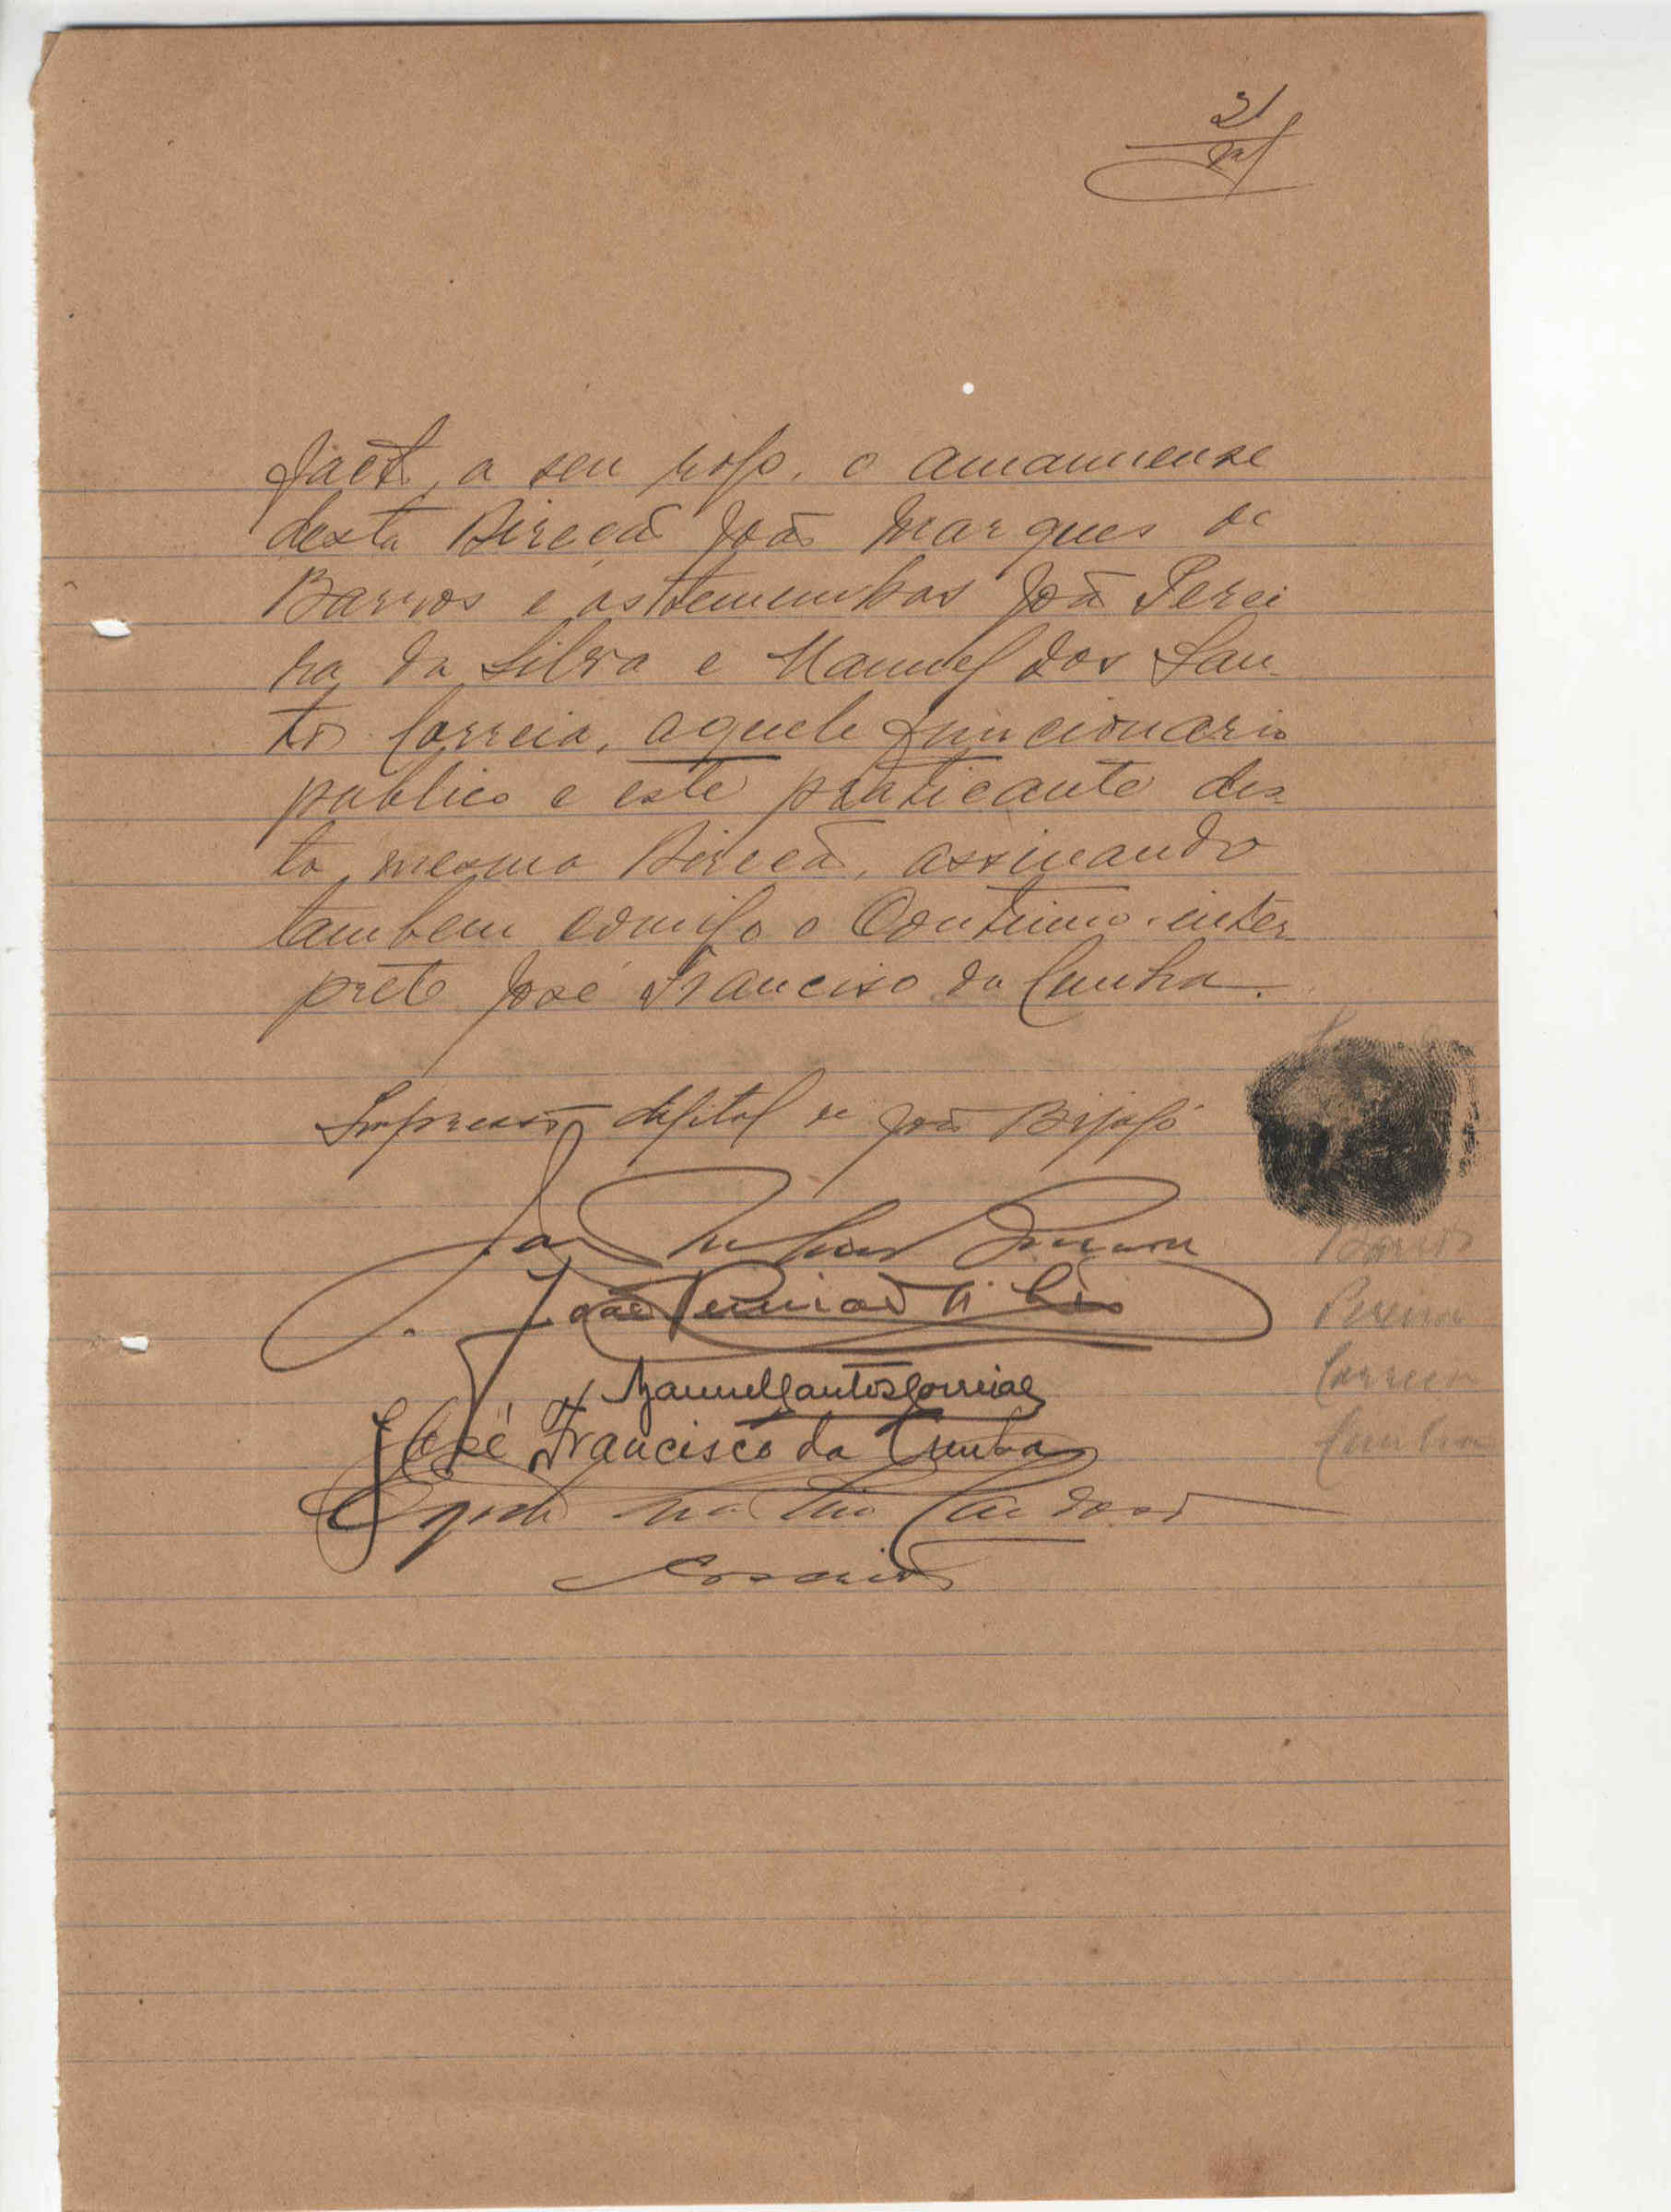 21
facto, a seu rogo, o amanuense
desta Direcção João Marques de
Barros e as testemunhas João Perei
ra da Silva e Manuel dos San-
tos Correia, aquele funcionario
publico e este praticante des-
ta mesma Direcção, assinando
tambem comigo o Continuo-inter
prete José Francisco da Cunha.
Impressão digital de João Bijagó
João
Barros
João Pereira da Silva
Pereira
Manuel Santos Correia
Correia
José Francisco da Cunha
Cunha
Cardoso